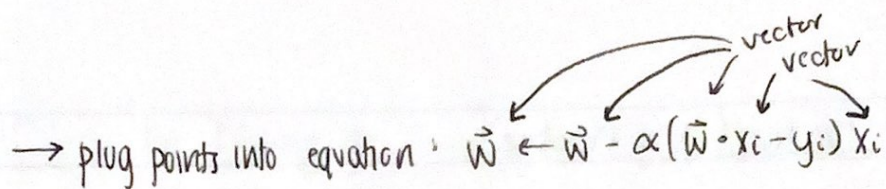 vector
vector
→ plug points into equation: $\vec{w} \leftarrow \vec{w} - \alpha(\vec{w} \cdot x_i - y_i) x_i$